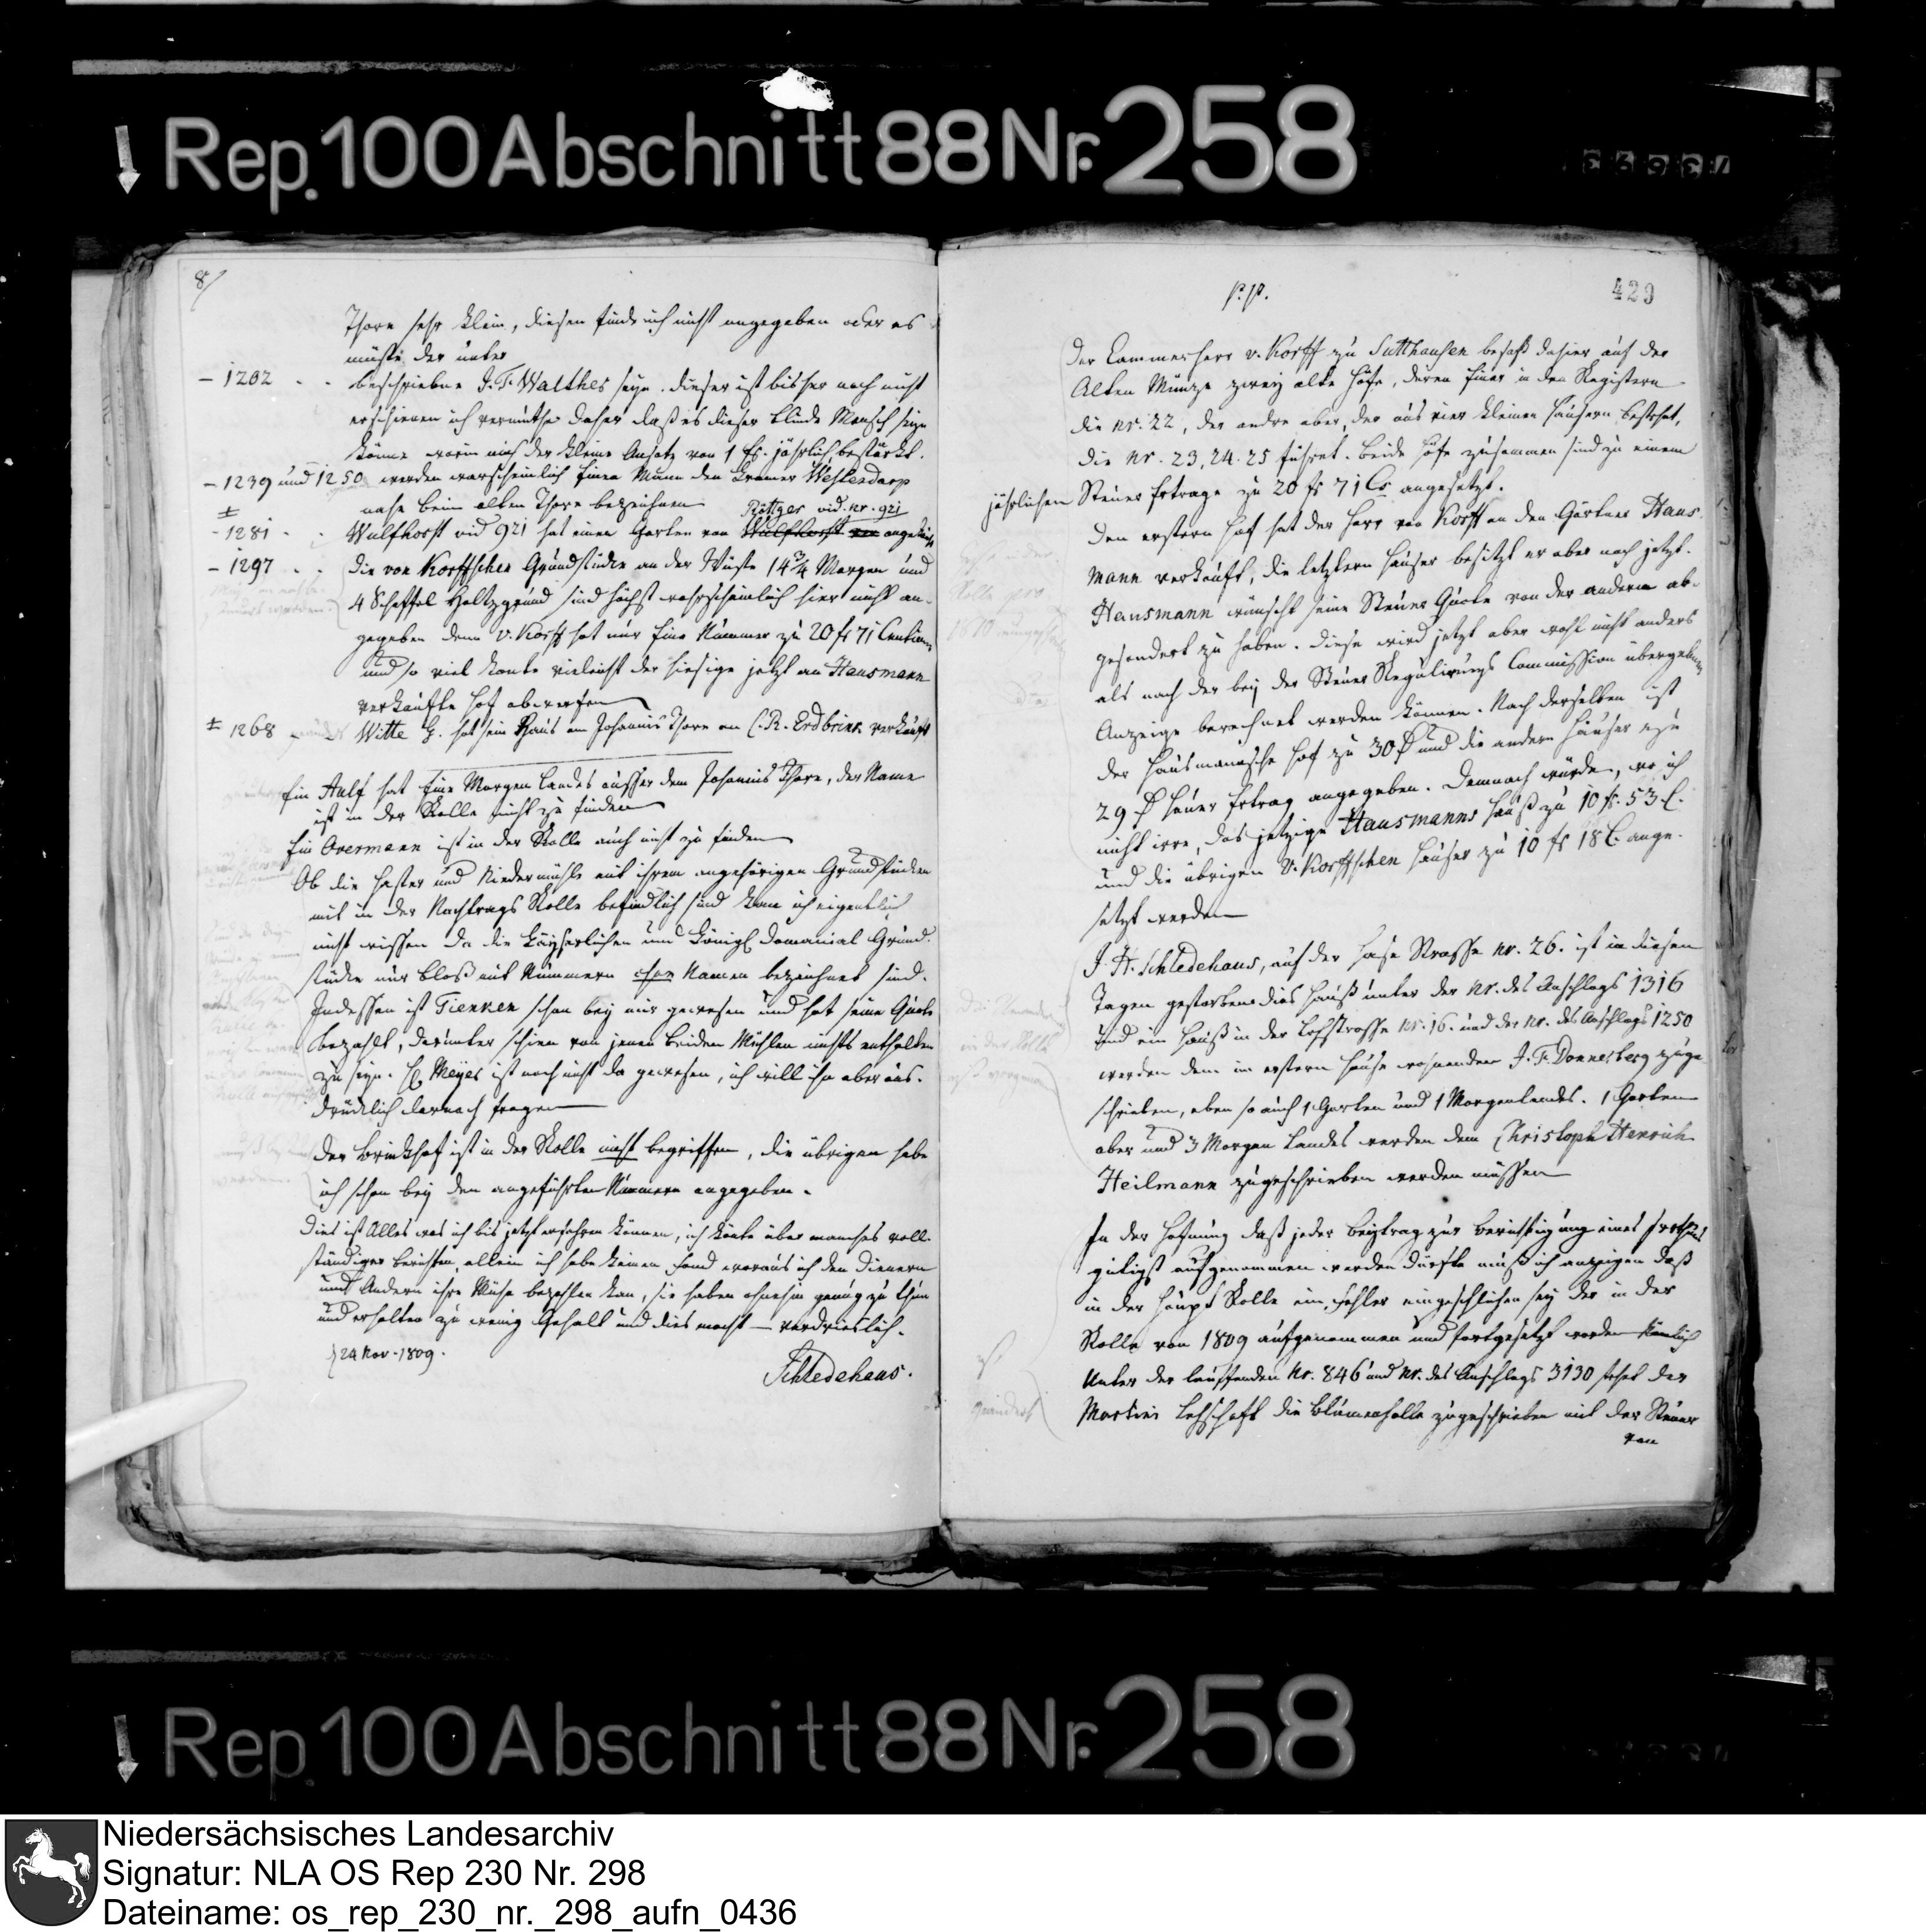 Rep. 100 Abschnitt 88 Nr. 258
8/
Thore sehr klein, diesen finde ich nicht angegeben oder es
müste der unter
- 1202 . . beschriebne J. F. Walthes seyn. dieser ist bisher noch nicht
erschienen ich vermuthe daher daß es dieser blinde Mensch seyn
könne worin mich der kleine Ansatz von 1 fr. jährlich bestärkt.
- 1239 und 1250 werden warscheinlich einen Mann den Kramer Westendarp
nahe beim alten Thore bezeichnen
Röttger vid. nr. 921
± - 1281 . . Wulfhorst vid 921 hat einen Garten von Wulfhorst angekauft
- 1297 . . die von Korffschen Grundstücke an der Wüste 14 3/4 Morgen und
4 Scheffel Holtzgrund sind höchst wahrscheinlich hier nicht an-
gegeben denn v. Korff hat nur eine Nummer zu 20 fr 71 Centimen
und so viel konte vieleicht der hiesige jetzt an Hausmann
verkaufte Hof abwerfen
± 1268 Witte H. hat sein Haus am Johannis Thore an C. R. Erdbrink verkauft
Ein Aulf hat eine Morgen Landes ausser dem Johannis Thore, der Name
ist in der Rolle nicht zu finden
Ein Overmann ist in der Rolle auch nicht zu finden
Ob die Haster und Niedermühle mit ihrem angehörigen Grundstücken
mit in der Nachtrags Rolle befindlich sind kan ich eigentlich
nicht wissen da die Kayserlichen und Königl Domanial Grund-
stücke nur blos mit Nummern ohne Namen bezeichnet sind.
Indessen ist Tienken schon bey mir gewesen und hat seine Quote
bezahlt, darunter schien von jenen beiden Mühlen nichts enthalten
zu seyn. H. Meyer ist noch nicht da gewesen, ich will ihn aber aus-
drücklich darnach fragen
Der Brinkhof ist in der Rolle nicht begriffen, die übrigen habe
ich schon bey den angeführten Nummern angegeben.
Dies ist Alles was ich bis jetzt erfahren können, ich könte über manches voll-
ständiger berichten, allein ich habe keinen Fond woraus ich den Dienern
und Andern ihre Mühe bezahlen kan, sie haben ohnehin genug zu thun
und erhalten zu wenig Gehalt und dies macht — verdrieslich.
24 Nov. 1809.
Schledehaus.
p. p.
429
Der Cammerherr v. Korff zu Sutthausen besaß dahier auf der
Alten Münze zwey alte Höfe, deren Einer in den Registern
die Nr. 22, der andre aber, der aus vier kleinen Häusern bestehet,
die Nr. 23, 24. 25 führet. Beide Höfe zusammen sind zu einem
jährlichen Steuer Ertrage zu 20 fr 71 Cs angesetzt.
Den erstern Hof hat der Herr von Korff an den Gärtner Haus-
mann verkauft, die letztern Häuser besitzt er aber noch jetzt.
Hausmann wünscht seine Steuer Quote von der andern ab-
gesondert zu haben. Diese wird jetzt aber wohl nicht anders
als nach der bey der Steuer Regulirungs Commission übergebnen
Anzeige berechnet werden können. Nach derselben ist
der Hausmannsche Hof zu 30 und die andern Häuser zu
29 Heuer Ertrag angegeben. Demnach würde, wo ich
nicht irre, das jetzige Hausmanns Hauß zu 10 fr. 53 C.
und die übrigen v. Korffschen Häuser zu 10 fr 18 C. ange-
setzt werden
J. H. Schledehaus, auf der Hase Strasse Nr. 26. ist in diesen
Tagen gestorben dies Hauß unter der Nr. des Anschlags 1316
und ein Hauß in der Lohstrasse Nr. 16. und der Nr. des Anschlags 1250
werden dem im erstern Hause wohnenden J. F. Donnerberg zuge-
schrieben, eben so auch 1 Garten und 1 Morgenlandes. 1 Garten
aber und 3 Morgen Landes werden dem Christoph Henrich
Heilmann zugeschrieben werden müssen
In der Hofnung daß jeder Beytrag zur Berichtigung eines Irrthums
gütigst aufgenommen werden dürfte muß ich anzeigen daß
in der Haupt Rolle ein Fehler eingeschlichen sey der in der
Rolle von 1809 aufgenommen und fortgesetzt worden Nämlich
Unter der lauffenden Nr. 846 und Nr. des Anschlags 3130 stehet der
Martini Lehschaft die Blumenhalle zugeschrieben mit der Steuer
von
Rep. 100 Abschnitt 88 Nr. 258
Niedersächsisches Landesarchiv
Signatur: NLA OS Rep 230 Nr. 298
Dateiname: os_rep_230_nr._298_aufn_0436